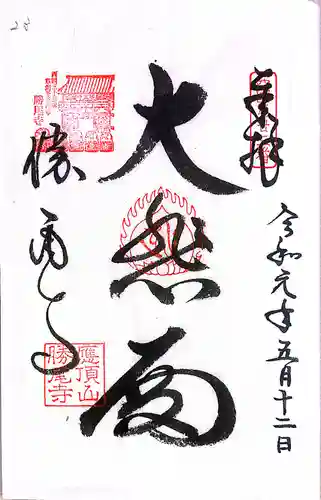 奉拝
令和元年五月十二日
大悲殿
勝尾寺
應頂山
勝尾寺